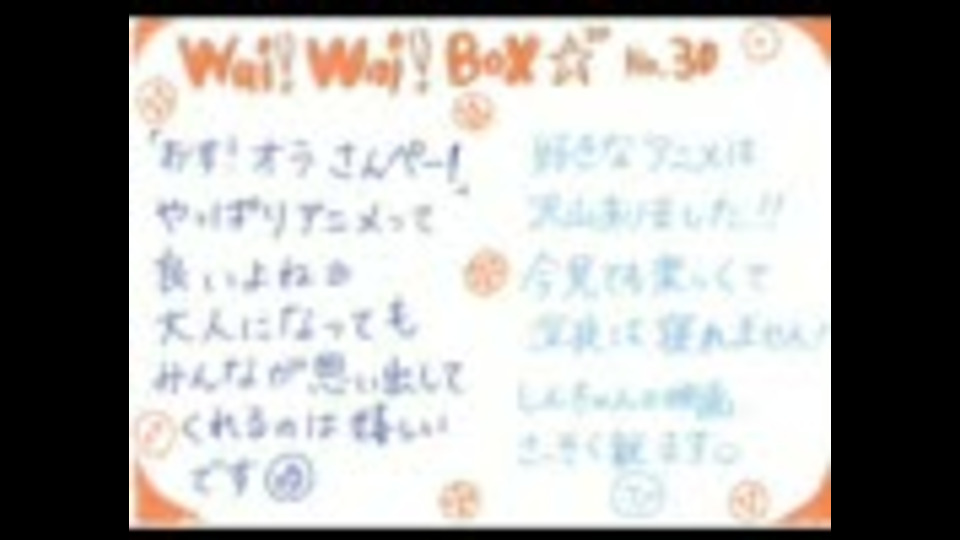 Wai! Wai! BOX☆ No.30
「おす！オラさんぺー！」
やっぱりアニメって
良いよね
大人になっても
みんなが思い出して
くれるのは嬉しい
です
好きなアニメは
沢山ありました!!
今見ても楽しくて
深夜は寝れません!
しんちゃんの映画
さっそく観ます